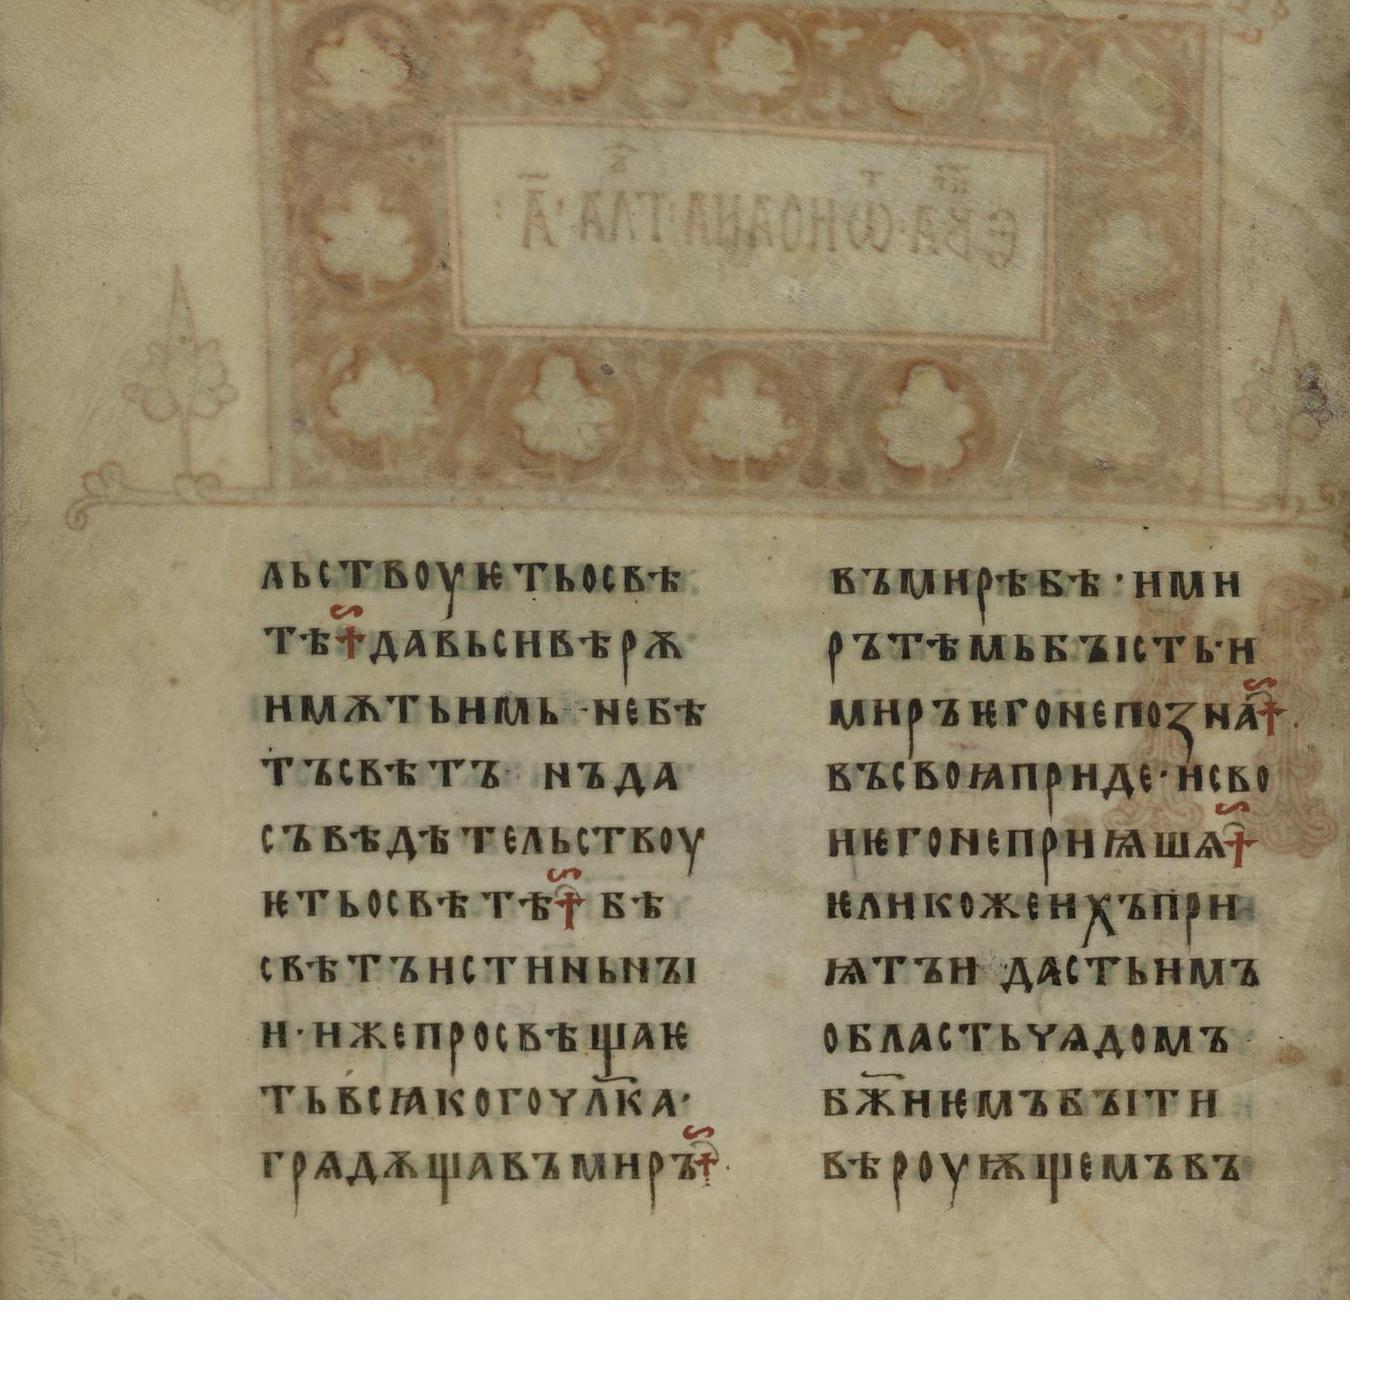 льствоуѥтьосвѣ
тѣ⁘давьсивѣрѫ
имѫтьимь·небѣ
тъсвѣтъ·нъда
съвѣдѣтельствоу
ѥтьосвѣтѣ⁘бѣ
свѣтъистиньнъі
и·ижепросвѣщаѥ
тьвсꙗкогочл҃ка·
грѧдѫщавъмиръ⁘
въмирѣбѣ·ими
рътѣмьбъість·и
миръѥгонепозна⁘
въсвоꙗприде·исво
иѥгонеприꙗшѧ⁘
ѥликожеихъпри
ѩтъи·дастьимъ
областьчѧдомъ
бж҃иѥмъбъіти
вѣроуѭщемъвъ